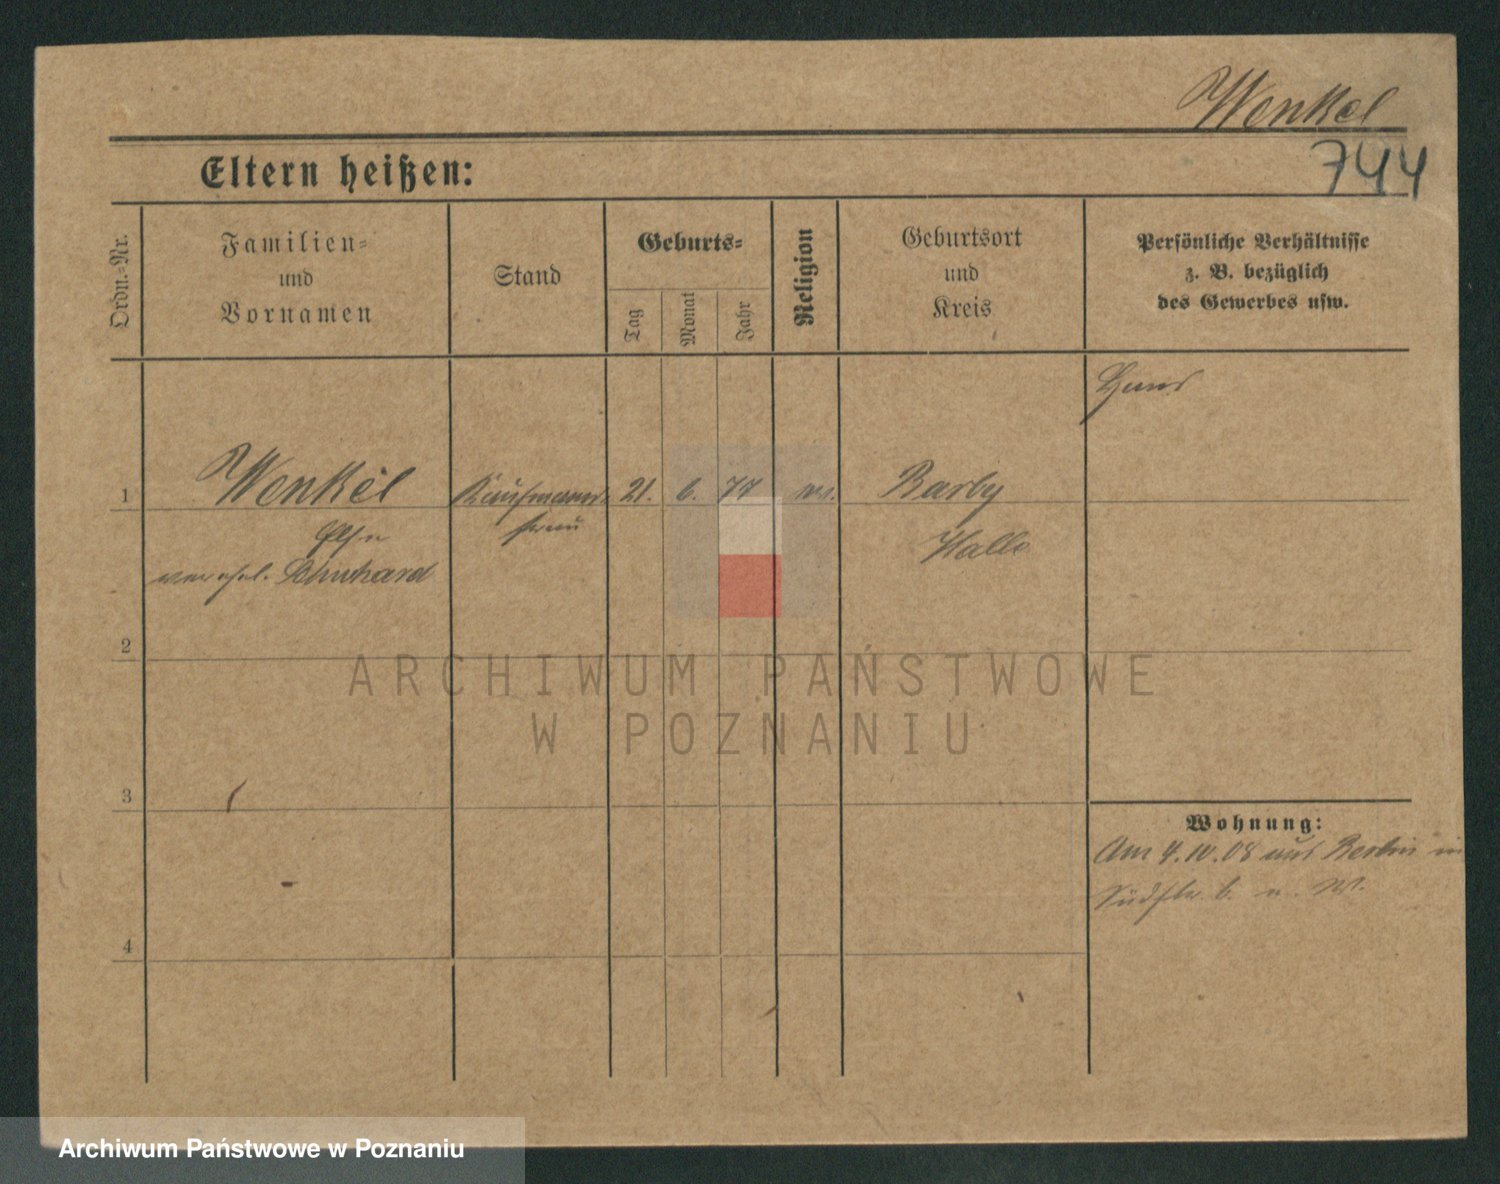 Wenkel
744
Eltern heißen:
Ordn.=Nr.
Familien=
und
Vornamen
Stand
Geburts=
Tag
Monat
Jahr
Religion
Geburtsort
und
Kreis
Persönliche Verhältnisse
z. B. bezüglich
des Gewerbes usw.
1
Wenkel
Kaufmanns-
frau
21.
6.
77
Barby
Halle
verehel. Schuchard
2
3
4
Wohnung:
Am 4.10.08 aus Berlin in
ARCHIWUM PAŃSTWOWE
W POZNANIU
Archiwum Państwowe w Poznaniu